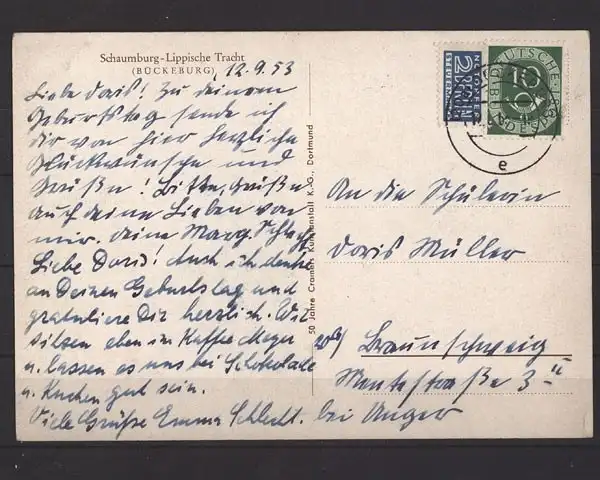 Schaumburg-Lippische Tracht
(BÜCKEBURG) 12.9.53
Liebe Doris! Zu deinem
Geburtstag sende ich
dir von hier herzliche
Glückwünsche und
Grüße! Bitte, Grüße
auch deine Lieben von
mir. deine Marg. Schlecht
Liebe Doris! Auch ich denke
an Deinen Geburtstag und
gratuliere Dir herzlich. Wir
sitzen eben im Kaffee Meyer
u. lassen es uns bei Schokolade
u. Kuchen gut sein.
Viele Grüße Emma Schlecht.
50 Jahre Cramers Kunstanstalt K.-G., Dortmund
NOTOPFER
2
BERLIN
DEUTSCHE
10
e
An die Schülerin
Doris Müller
20b) Braunschweig
3 II
bei Unger